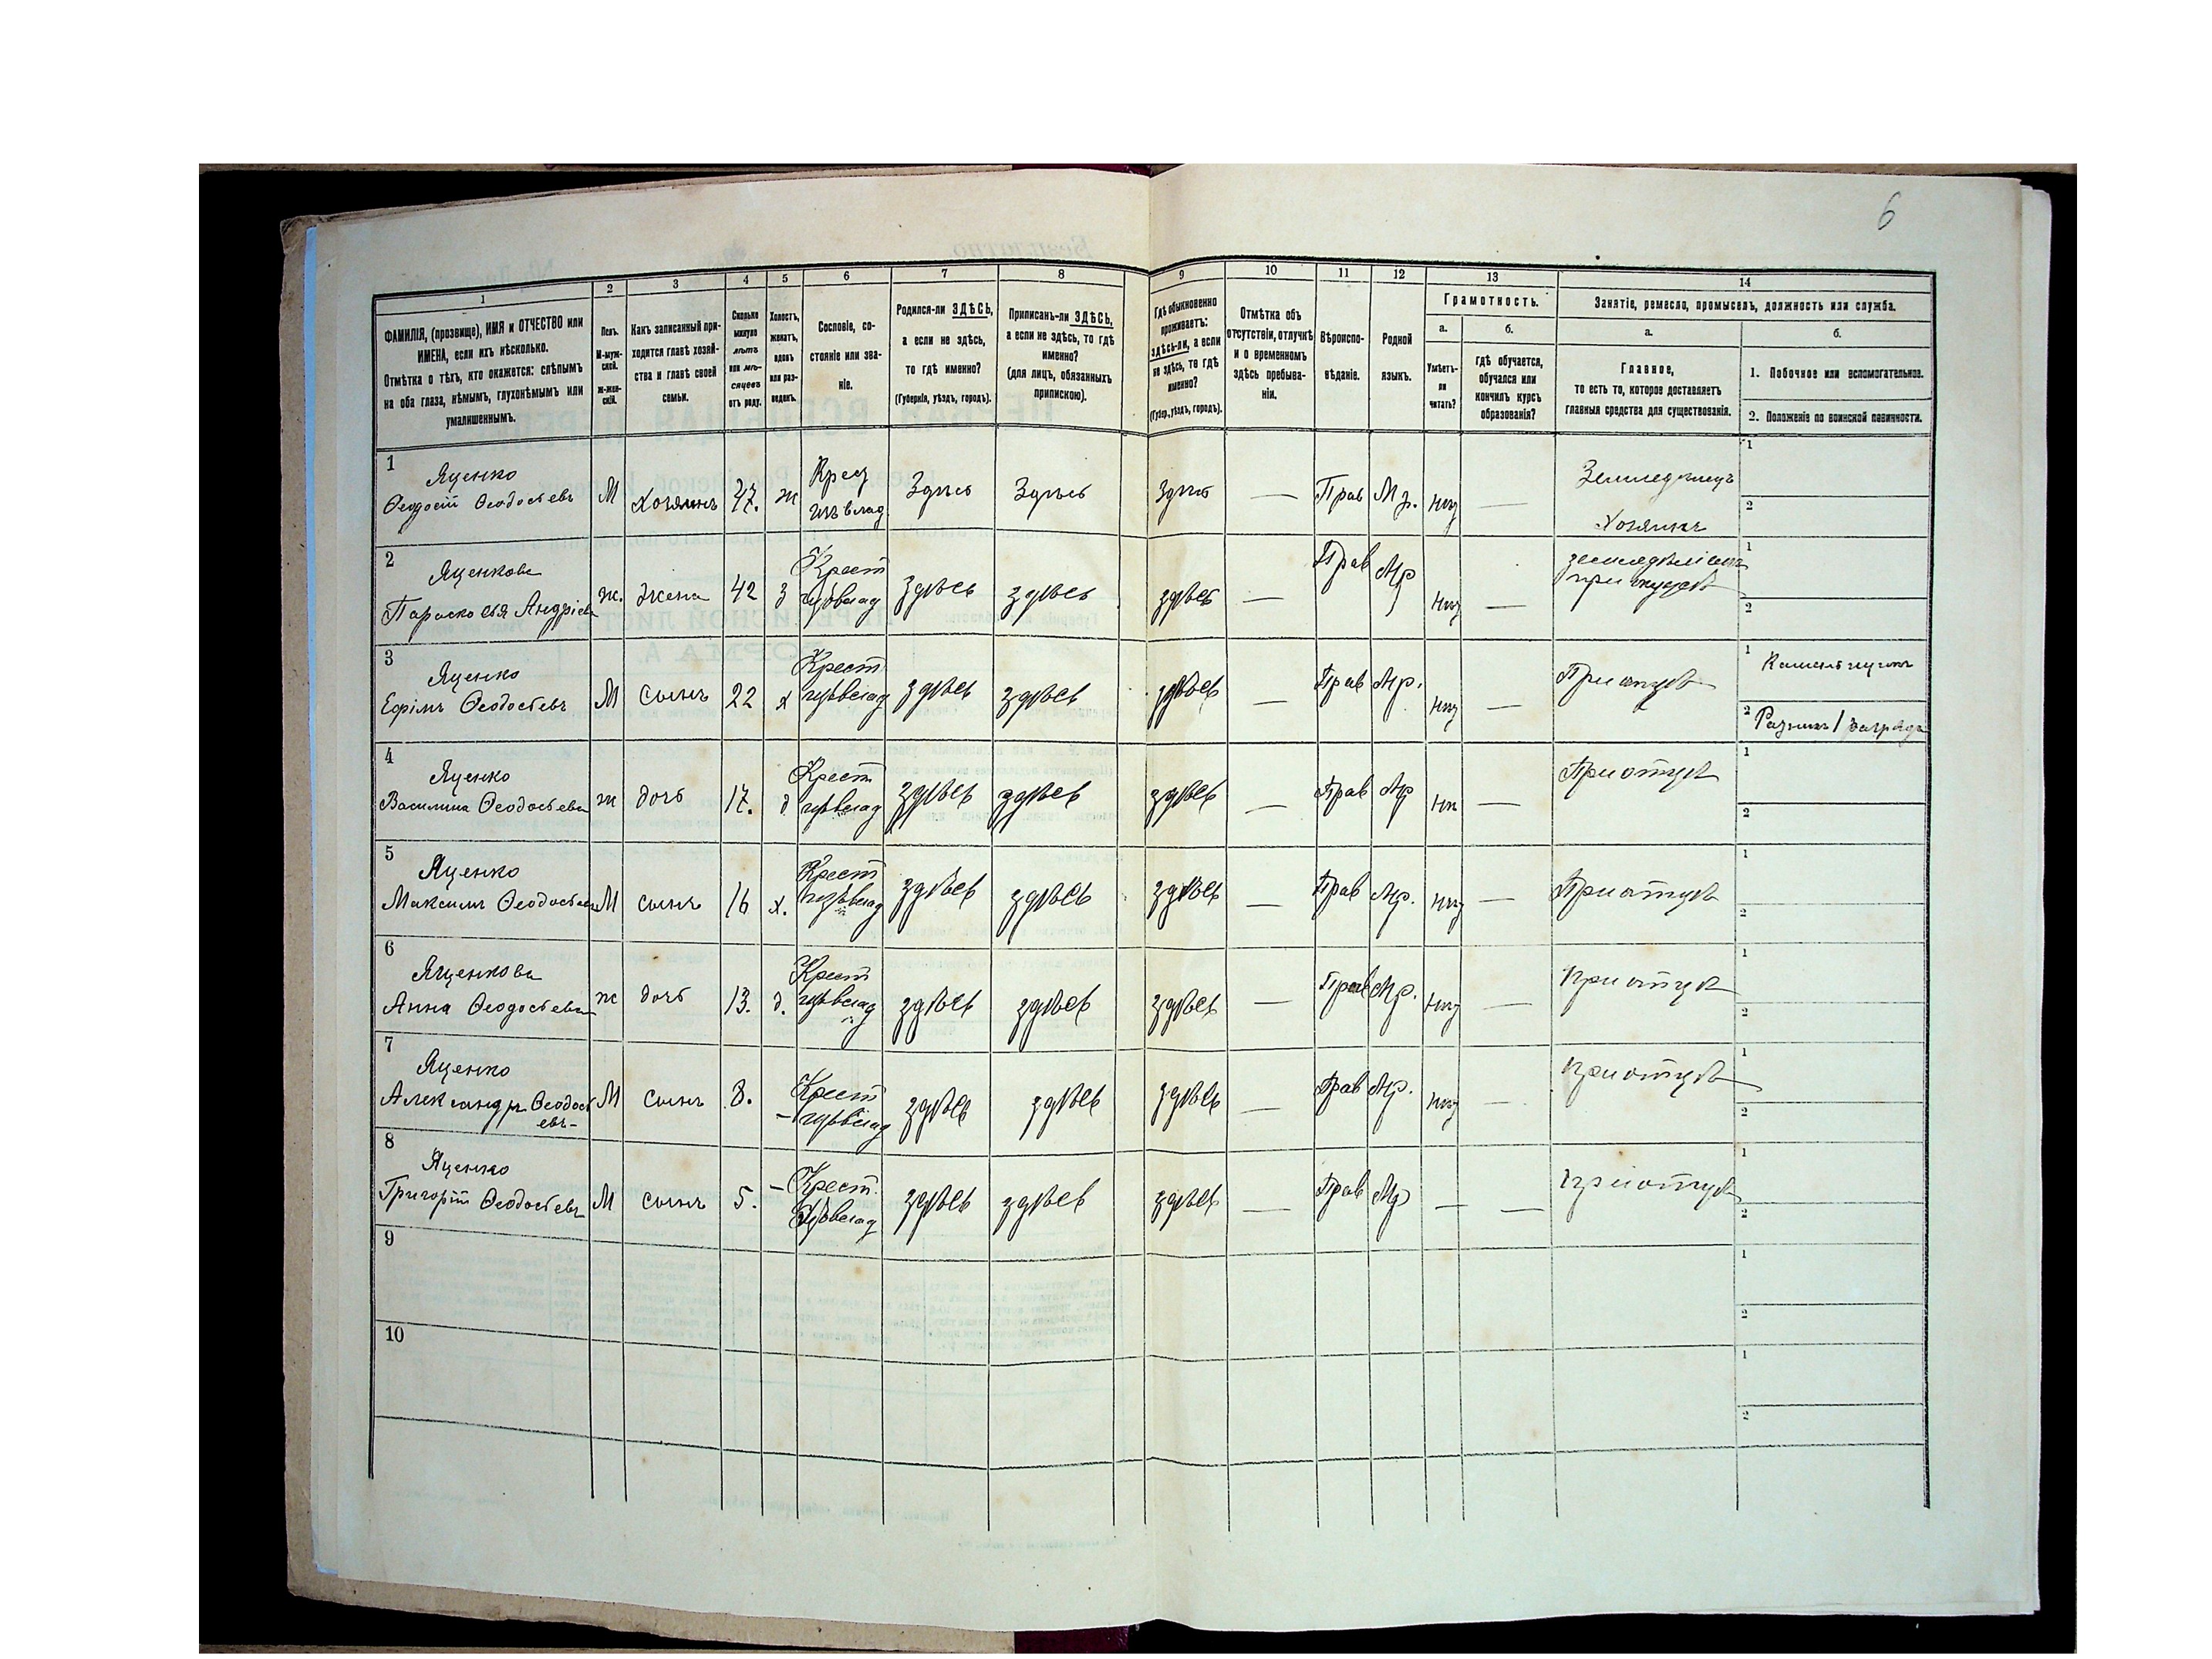 6
1
2
3
4
5
6
7
8
9
10
11
12
13
14
ФАМИЛІЯ, (прозвище), ИМЯ и ОТЧЕСТВО или
ИМЕНА, если ихъ нѣсколько.
Отмѣтка о тѣхъ, кто окажется: слѣпымъ
на оба глаза, нѣмымъ, глухонѣмымъ или
умалишеннымъ.
Полъ.
М-муж-
ской.
ж-жен-
скій.
Какъ записанный при-
ходится главѣ хозяй-
ства и главѣ своей
семьи.
Сколько
минуло
лѣтъ
или мѣ-
сяцевъ
отъ роду.
Холостъ,
женатъ,
вдовъ
или раз-
веденъ.
Сословіе, со-
стояніе или зва-
ніе.
Родился-ли ЗДѢСЬ,
а если не здѣсь,
то гдѣ именно?
(Губернія, уѣздъ, городъ).
Приписанъ-ли ЗДѢСЬ,
а если не здѣсь, то гдѣ
именно?
(для лицъ, обязанныхъ
припискою).
Гдѣ обыкновенно
проживаетъ:
здѣсь-ли, а если
не здѣсь, то гдѣ
именно?
(Губер., уѣздъ, городъ).
Отмѣтка объ
отсутствіи, отлучкѣ
и о временномъ
здѣсь пребыва-
ніи.
Вѣроиспо-
вѣданіе.
Родной
языкъ.
Грамотность.
а.
Умѣетъ-
ли
читать?
б.
гдѣ обучается,
обучался или
кончилъ курсъ
образованія?
Занятіе, ремесло, промыселъ, должность или служба.
а.
Главное,
то есть то, которое доставляетъ
главныя средства для существованія.
б.
1. Побочное или вспомогательное.
2. Положеніе по воинской повинности.
1
Яценко
Ѳеодосій Ѳеодосьевъ М хозяинъ 47. ж Крес изъ влад Здѣсь Здѣсь Здѣсь — Прав Мр. нѣтъ — Земледѣлецъ
Хозяинъ
1
2
2
Яценкова
Параскевія Андріева ж. жена 42 з Крест изъ влад здѣсь здѣсь здѣсь — Прав Мр нѣтъ —
1
2
3
Яценко
Ефімъ Ѳеодосьевъ М сынъ 22 х Крест изъ влад здѣсь здѣсь здѣсь — Прав Мр. нѣтъ —
1
2
4
Яценко
Василина Ѳеодосьева ж дочь 17. д Крест изъ влад здѣсь здѣсь здѣсь — Прав Мр —
1
2
5
Яценко
Максимъ Ѳеодосьевъ М сынъ 16 х. Крест изъ влад здѣсь здѣсь здѣсь — Прав Мр. нѣтъ —
1
2
6
Яценкова
Анна Ѳеодосьева ж дочь 13. д. Крест изъ влад здѣсь здѣсь здѣсь — Прав Мр. нѣтъ —
1
2
7
Яценко
Александръ Ѳеодось
евъ- М сынъ 8. — Крест изъ влад здѣсь здѣсь здѣсь — Прав Мр. нѣтъ —
1
2
8
Яценко
Григорій Ѳеодосьевъ М сынъ 5. — Крест. изъ влад здѣсь здѣсь здѣсь — Прав Мр — —
1
2
9
1
2
10
1
2